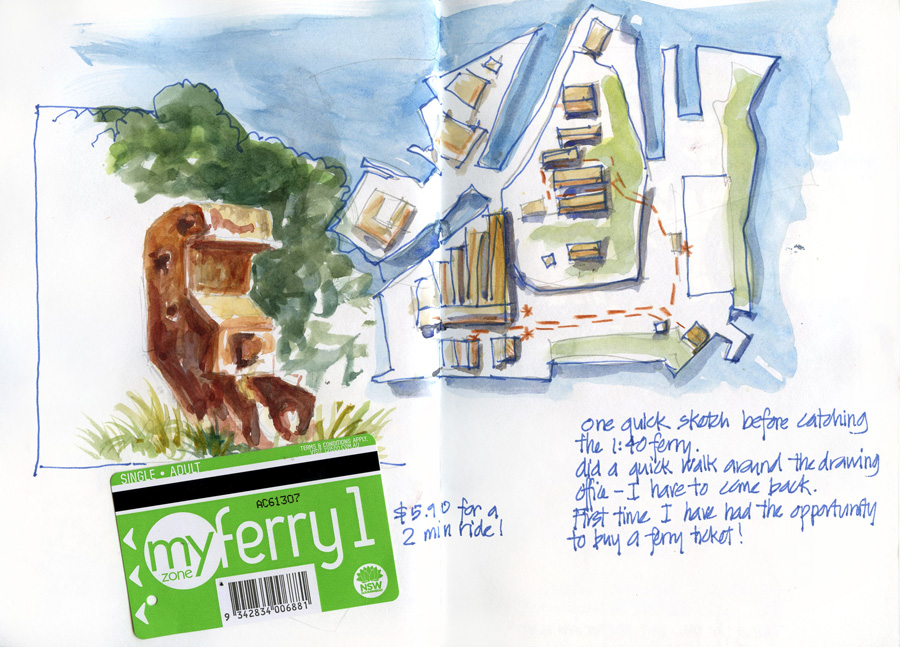 TERMS & CONDITIONS APPLY.
SINGLE • ADULT
AC61307
my ferry 1
zone
9 342834 006881
NSW
GOVERNMENT
$5.90 for a
2 min ride!
one quick sketch before catching
the 1:40 ferry.
did a quick walk around the drawing
office - I have to come back.
First time I have had the opportunity
to buy a ferry ticket!